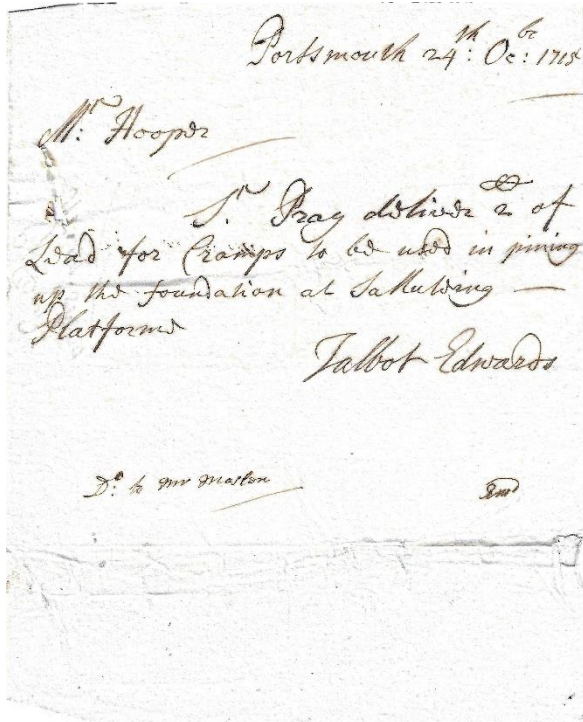 Portsmouth 24th: Ocbr: 1715
Mr: Hooper
Sr. Pray deliver 2 of
Lead for Cramps to be used in pining
up the foundation at Salluteing —
Platforme
Talbot Edwards
Do: to Mr Maston